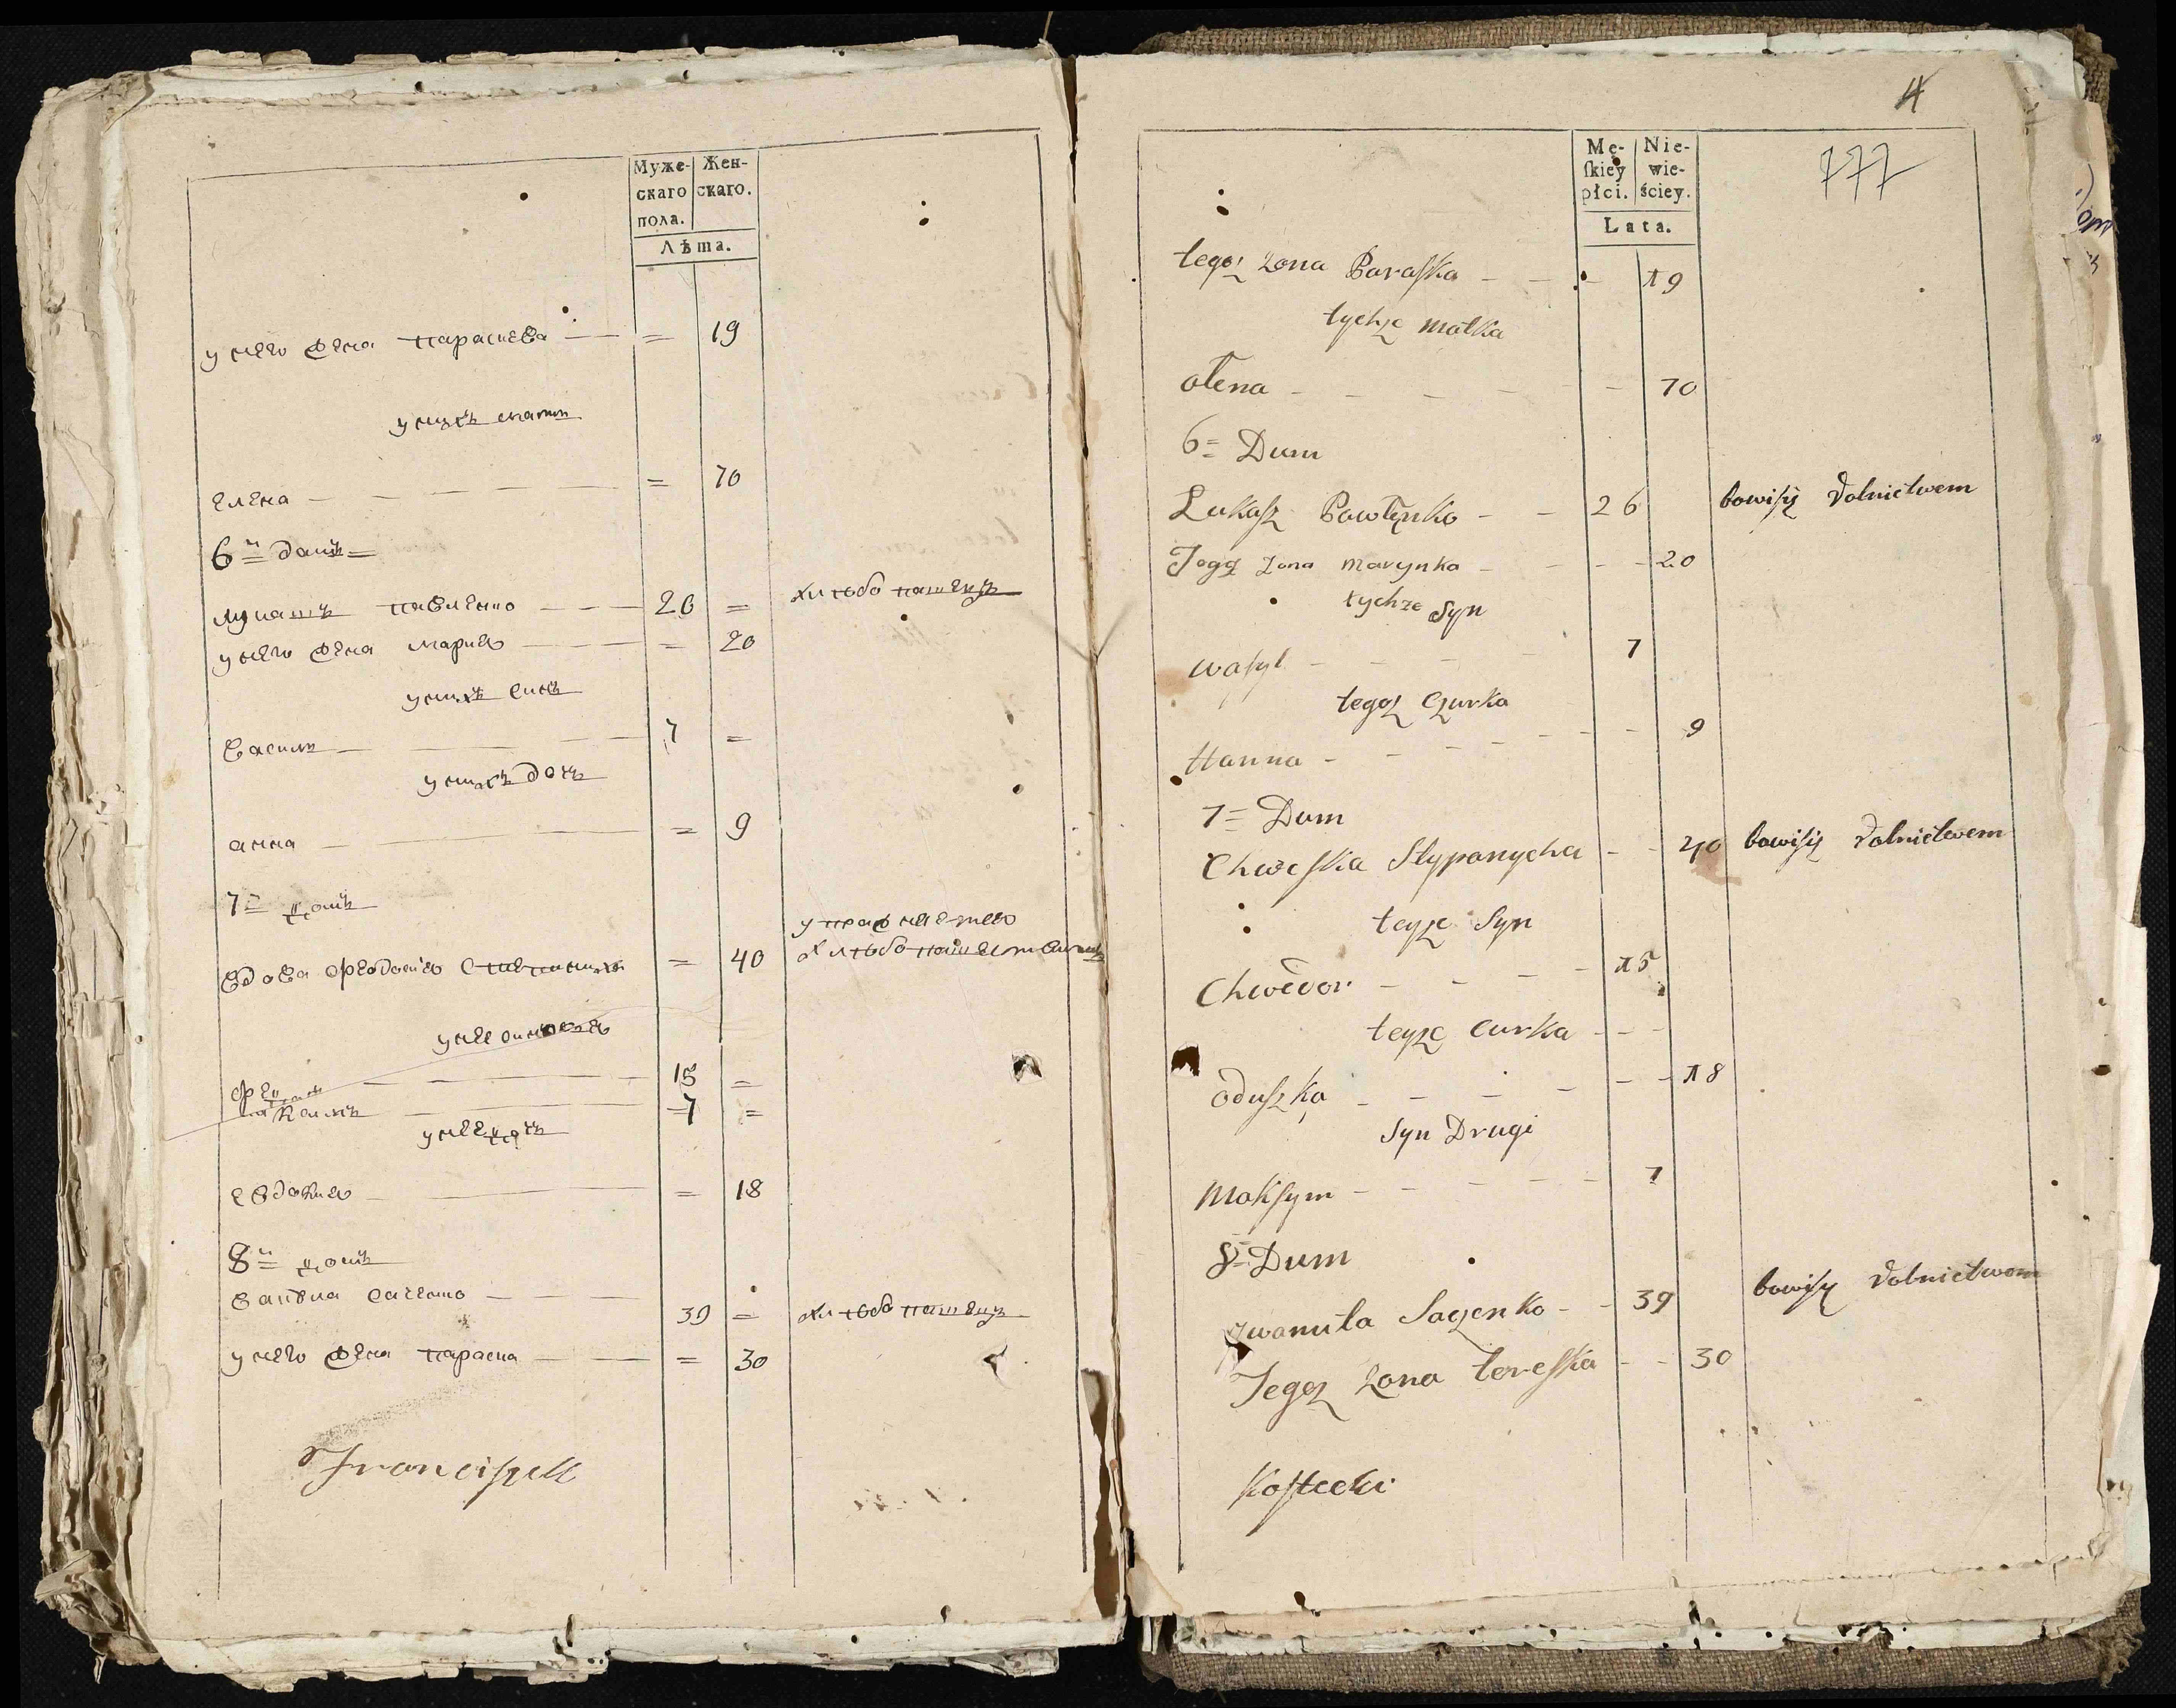 Муже-
скаго
пола.
Жен-
скаго.
Лѣта.
у него жена параскева — = 19
у нихъ мати
елена — = 70
6й домъ
лукашъ павленко — 26 = хлѣбопашецъ
у него жена мария — = 20
у нихъ синъ
васили — 7 =
у нихъ дочъ
анна — = 9
7й домъ
упражняется
вдова феодосия степаниха = 40 хлѣбопашествомъ
у нее синовья
федоръ — 15 =
максимъ — 7 =
у нее дочъ
евдокия — = 18
8й домъ
ванѣла саченко — 39 = хлѣбопашецъ
у него жена параска — = 30
Franciszek
4
777
Mę-
skiey
płci.
Nie-
wie-
ściey.
Lata.
tegoż żona Paraska - - - 19
tychże matka
ołena - - - - - 70
6= Dum
Łukasz Pawłęnko - - 26 bawi się Rolnictwem
Jegoż żona marynka - - - 20
tychże Syn
wasyl - - - - 7
tegoż Czurka
Hanna - - - - - - 9
7= Dum
Chweska Stypanycha - - 40 bawi się Rolnictwem
teyże Syn
Chwedor - - - - 15
teyże Curka - - -
oduszka - - - - - 18
Syn Drugi
Moksym - - - - - 7
8= Dum
Iwanuła Saczenko - - 39 bawi się Rolnictwem
Jegoż żona tereska - - 30
Kostecki